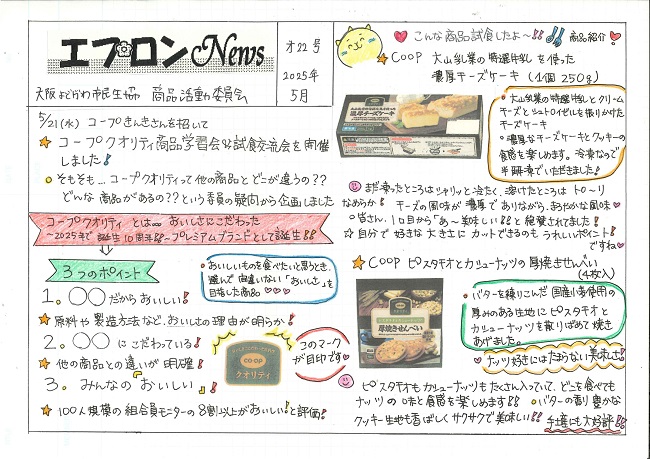 エプロンNews
オ22号
2025年
5月
大阪よどがわ市民生協 商品活動委員会
5/21(水) コープきんきさんを招いて
コープクオリティ商品学習会&試食交流会を開催
しました!
そもそも… コープクオリティって他の商品とどこが違うの??
どんな商品があるの??という委員の疑問から企画しました
コープクオリティ とは… おいしさにこだわった
～2025年で誕生10周年!!～プレミアムブランドとして誕生!!
3つのポイント
・おいしいものを食べたいと思うとき、
選んで間違いない「おいしさ」を
目指した商品♡♡♡
1。○○だからおいしい!
原料や製造方法など、おいしさの理由が明らか!
2。○○にこだわっている!
他の商品との違いが明確!
3。みんなのおいしい!
100人規模の組合員モニターの8割以上がおいしい!と評価!
co-op
クオリティ
このマーク
が目印です
こんな商品試食したよ～!!
商品紹介
COOP 大山乳業の特選牛乳を使った
濃厚チーズケーキ (1個 250g)
濃厚チーズケーキ
・大山乳業の特選牛乳とクリーム
チーズとシュトロイゼルを張りかけた
チーズケーキ
・濃厚なチーズケーキとクッキーの
食感を楽しめます。冷凍なので
半解凍でいただきました!
まだ凍ったところはシャリッと冷たく、溶けたところはト～リ
なめらか! チーズの風味が濃厚でありながら、まろやかな風味♡
皆さん、1口目から「あ～美味しい!!」と絶賛されてました!
自分で好きな大きさにカットできるのもうれしいポイント!
ですね♡
COOP ピスタチオとカシューナッツの厚焼きせんべい
(4枚入)
厚焼きせんべい
・バターを練りこんだ国産小麦使用の
厚みのある生地にピスタチオと
カシューナッツを散りばめて焼き
あげました。
ナッツ好きにはたまらない美味しさ!
ピスタチオもカシューナッツもたくさん入っていて、どこを食べても
ナッツの味と食感を楽しめます!! ・バターの香り豊かな
クッキー生地も香ばしくサクサクで美味しい!! 手土産にも大好評!!